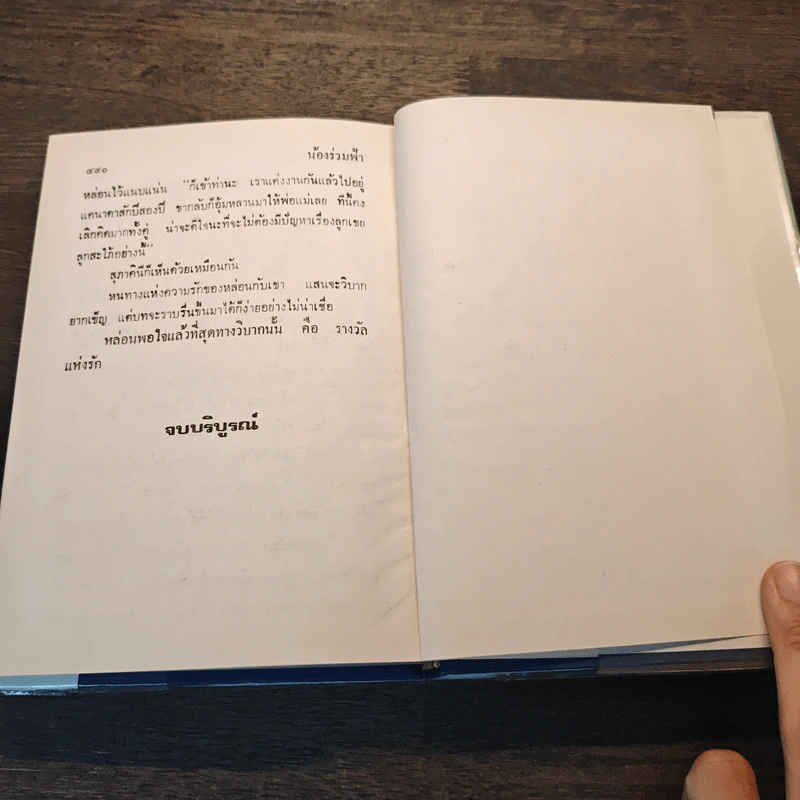 ๔๔๐
น้องร่วมฟ้า
หล่อนไว้แนบแน่น "ก็เข้าท่านะ เราแต่งงานกันแล้วไปอยู่
แคนาดาสักปีสองปี ขากลับก็อุ้มหลานมาให้พ่อแม่เลย ทีนี้คง
เลิกคิดมากทั้งคู่ น่าจะดีใจนะที่จะไม่ต้องมีปัญหาเรื่องลูกเขย
ลูกสะใภ้อย่างนี้"
สุภาคินีก็เห็นด้วยเหมือนกัน
หนทางแห่งความรักของหล่อนกับเขา แสนจะวิบาก
ยากเข็ญ แต่บทจะราบรื่นขึ้นมาได้ก็ง่ายอย่างไม่น่าเชื่อ
หล่อนพอใจแล้วที่สุดทางวิบากนั้น คือ รางวัล
แห่งรัก
จบบริบูรณ์